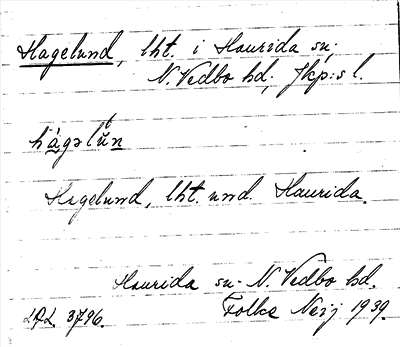 Hagelund, lht. i Haurida sn;
N. Vedbo hd; Jkp:s l.
hàgəlün
Hagelund, lht. und. Haurida.
Haurida sn. N. Vedbo hd.
3796. Folke Neij 1939.